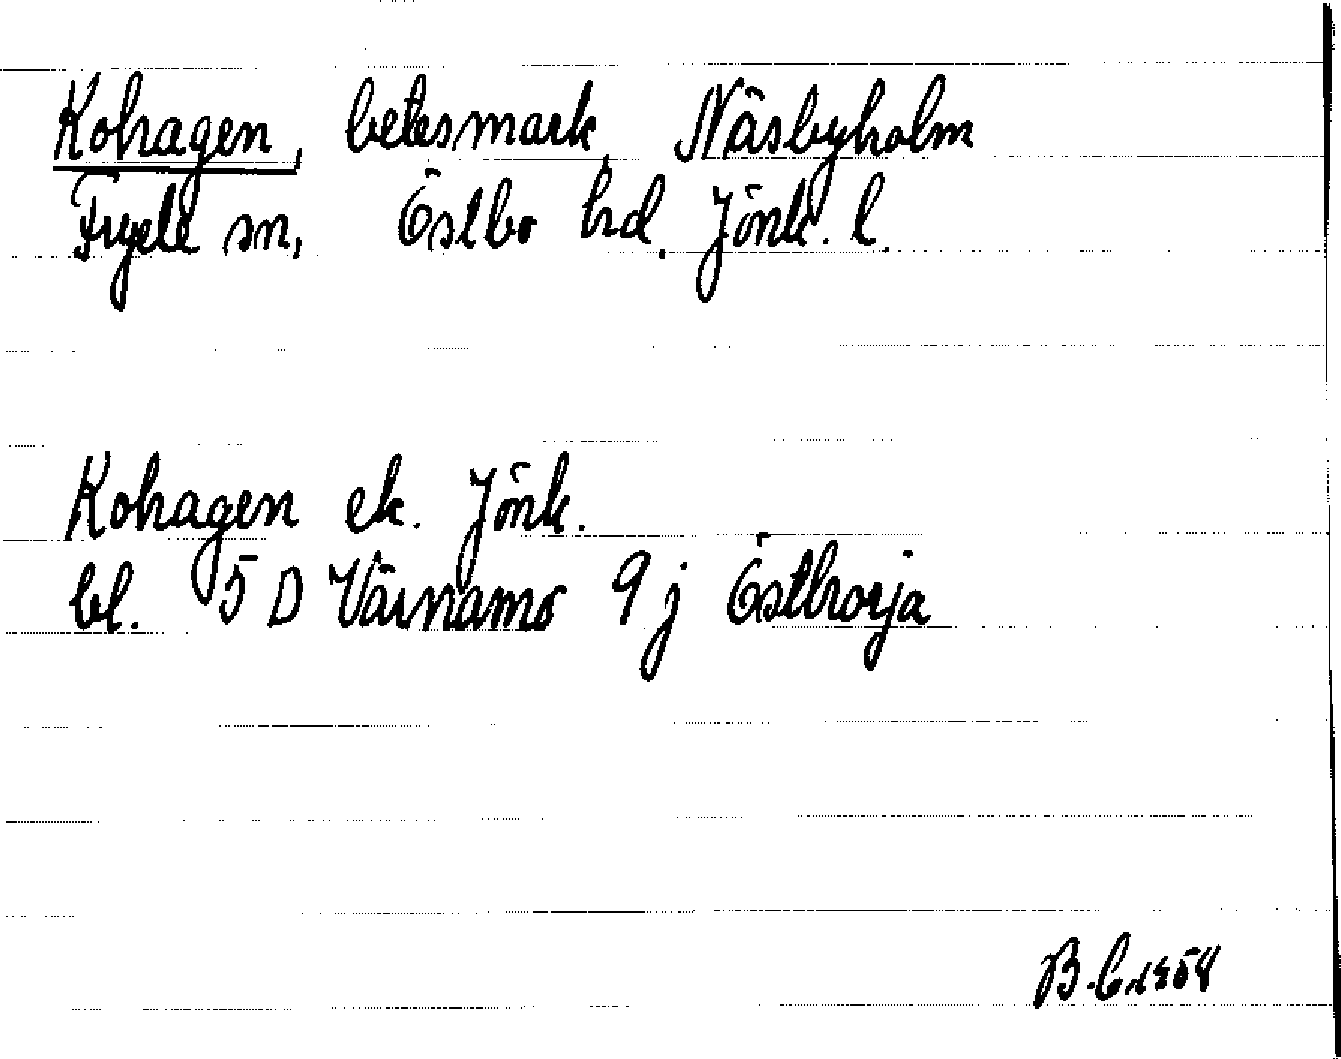 Kohagen, betesmark, Näsbyholm
Fryele sn, Östbo hd, Jönk. l.
Kohagen ek. Jönk.
bl. 5 D Värnamo 9 j Östhorja
B. C. 1954